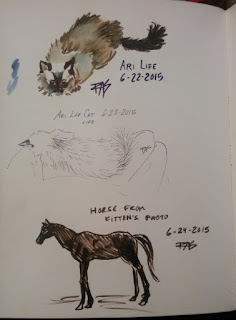 ARI LIFE
6-22-2015
ARI LAP CAT 6-23-2015
LIFE
HORSE FROM
KITTEN'S PHOTO
6-24-2015